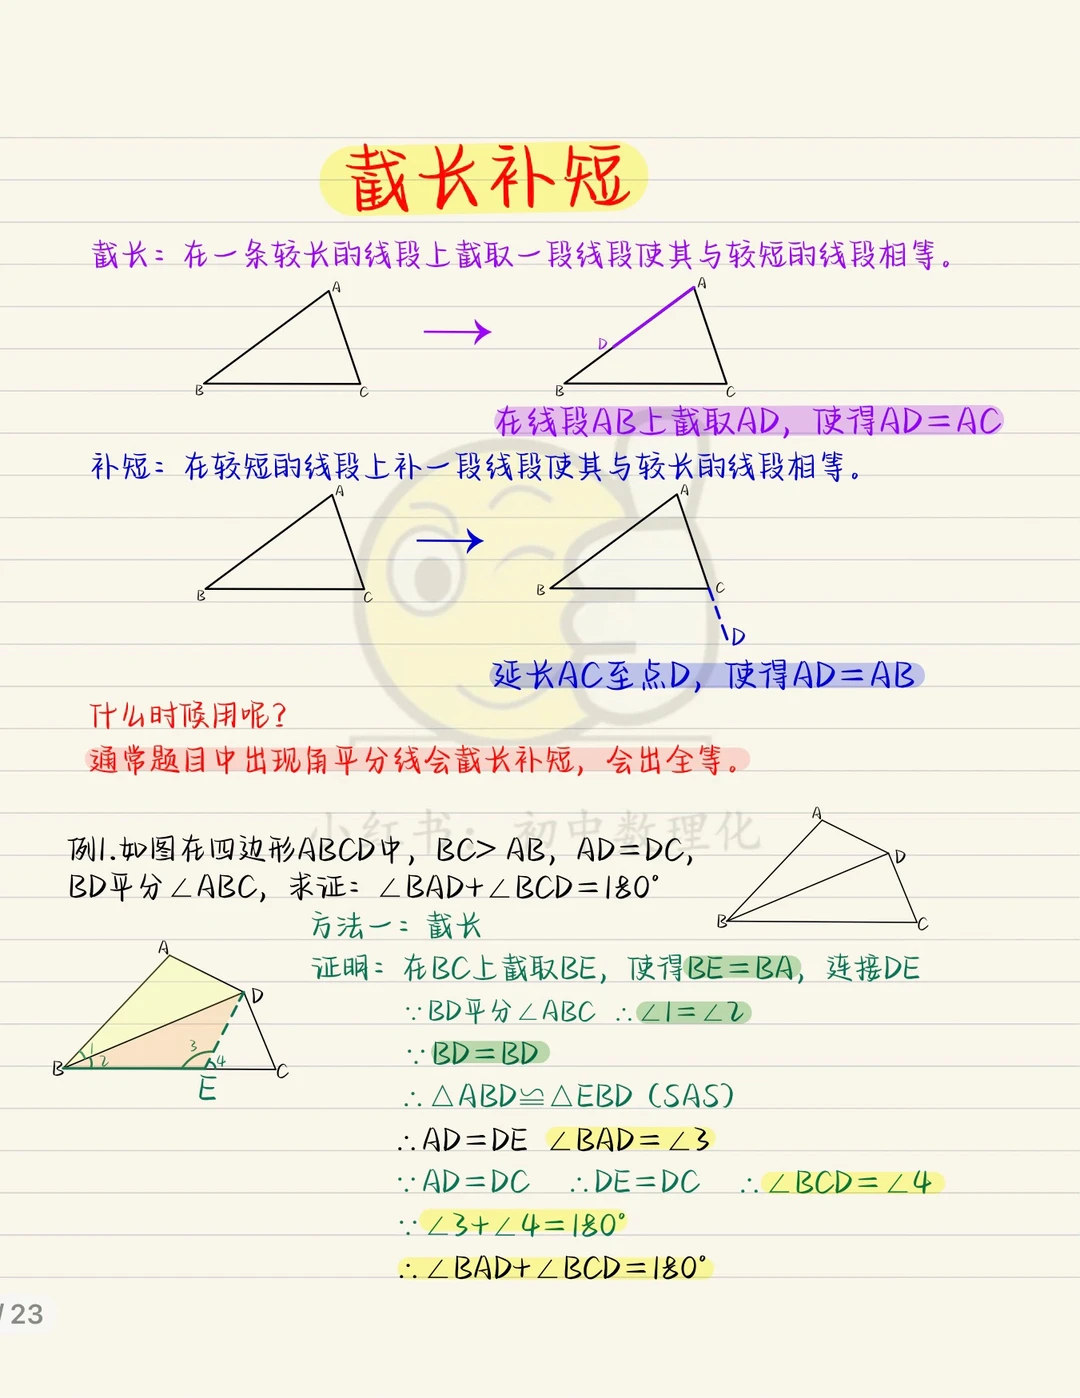 截长补短
截长：在一条较长的线段上截取一段线段使其与较短的线段相等。
A
B
C
A
D
B
C
在线段AB上截取AD，使得AD=AC
补短：在较短的线段上补一段线段使其与较长的线段相等。
A
B
C
A
B
C
D
延长AC至点D，使得AD=AB
什么时候用呢？
通常题目中出现角平分线会截长补短，会出全等。
小红书：初中数理化
例1.如图在四边形ABCD中，BC>AB，AD=DC，
BD平分∠ABC，求证：∠BAD+∠BCD=180°
A
D
B
C
方法一：截长
证明：在BC上截取BE，使得BE=BA，连接DE
∵BD平分∠ABC ∴∠1=∠2
∵BD=BD
∴△ABD≌△EBD（SAS）
∴AD=DE ∠BAD=∠3
∵AD=DC ∴DE=DC ∴∠BCD=∠4
∵∠3+∠4=180°
∴∠BAD+∠BCD=180°
A
D
1
2
3
4
B
E
C
/23